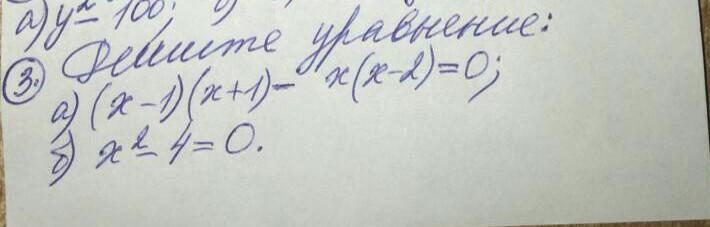 а) y² – 100;
3. Решите уравнение:
а) (x – 1)(x + 1) – x(x – 2) = 0;
б) x² – 4 = 0.